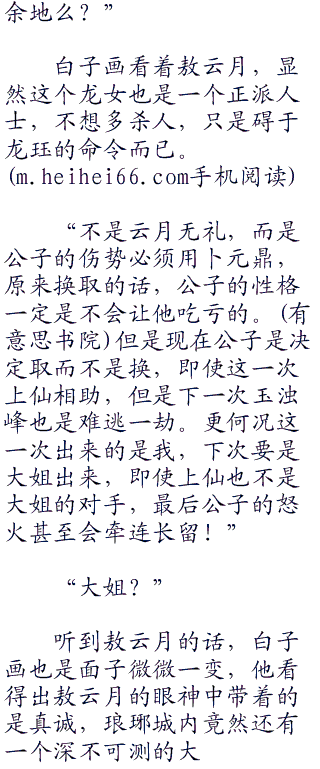 余地么？”
白子画看着敖云月，显
然这个龙女也是一个正派人
士，不想多杀人，只是碍于
龙珏的命令而已。
(m.heihei66.com手机阅读)
“不是云月无礼，而是
公子的伤势必须用卜元鼎，
原来换取的话，公子的性格
一定是不会让他吃亏的。(有
意思书院)但是现在公子是决
定取而不是换，即使这一次
上仙相助，但是下一次玉浊
峰也是难逃一劫。更何况这
一次出来的是我，下次要是
大姐出来，即使上仙也不是
大姐的对手，最后公子的怒
火甚至会牵连长留！”
“大姐？”
听到敖云月的话，白子
画也是面子微微一变，他看
得出敖云月的眼神中带着的
是真诚，琅琊城内竟然还有
一个深不可测的大